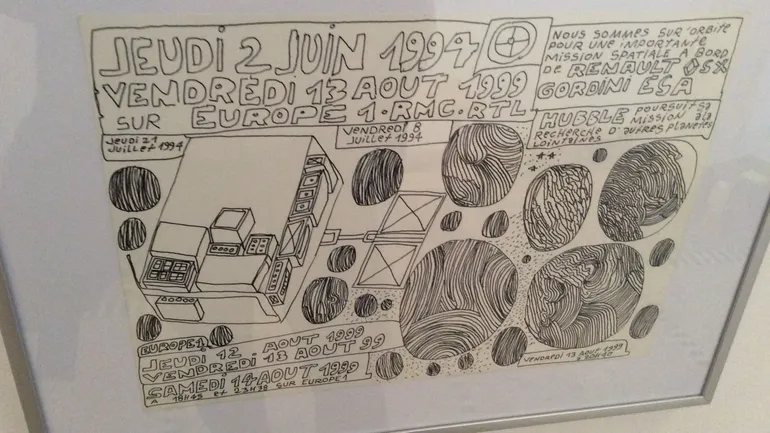 JEUDI 2 JUIN 1994
VENDREDI 13 AOUT 1999
SUR EUROPE 1.RMC.RTL
NOUS SOMMES SUR ORBITE
POUR UNE IMPORTANTE
MISSION SPATIALE A BORD
DE RENAULT
GORDINI ESA
HUBBLE POURSUIT SA
MISSION A LA
RECHERCHE D'AUTRES PLANETES
LOINTAINES
JEUDI 21
JUILLET 1994
VENDREDI 8
JUILLET 1994
EUROPE 1
JEUDI 12 AOUT 1999
VENDREDI 13 AOUT 99
SAMEDI 14 AOUT 1999
A 18H45 et 23H30 SUR EUROPE 1
VENDREDI 13 AOUT 1999